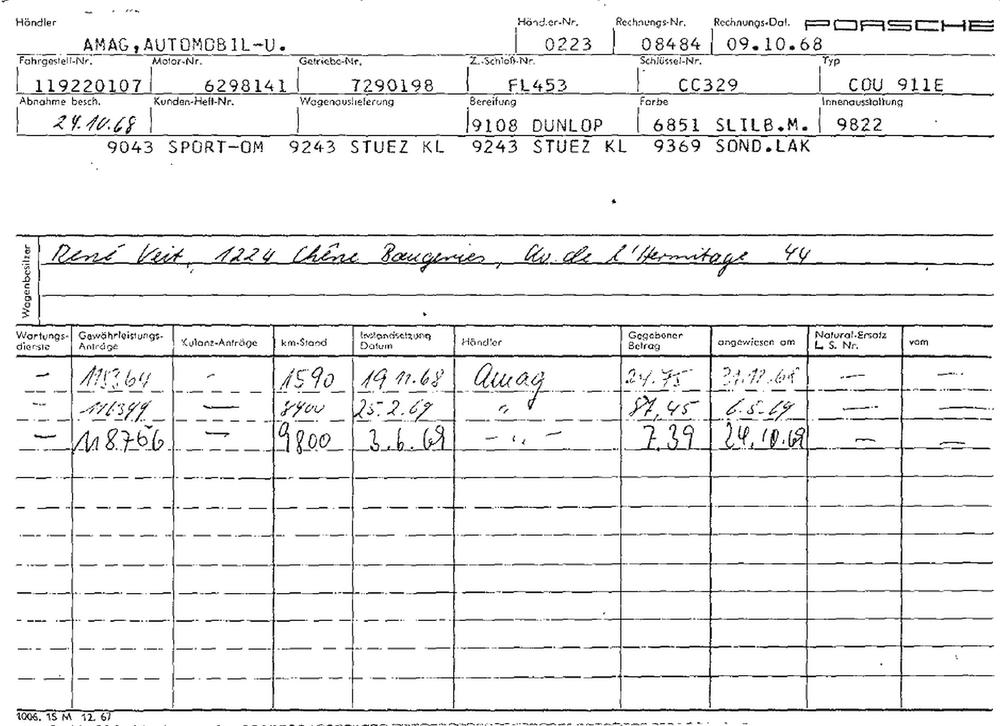 Händler Händler-Nr. Rechnungs-Nr. Rechnungs-Dat. PORSCHE
AMAG,AUTOMOBIL-U. 0223 08484 09.10.68
Fahrgestell-Nr. Motor-Nr. Getriebe-Nr. Z.-Schloß-Nr. Schlüssel-Nr. Typ
119220107 6298141 7290198 FL453 CC329 COU 911E
Abnahme besch. Kunden-Heft-Nr. Wagenauslieferung Bereifung Farbe Innenausstattung
24.10.68 9108 DUNLOP 6851 SLILB.M. 9822
9043 SPORT-OM 9243 STUEZ KL 9243 STUEZ KL 9369 SOND.LAK
Wagenbesitzer
René Veit, 1224 Chêne Baugeries, Av. de l'Hermitage 44
Wartungs- Gewährleistungs- Kulanz-Anträge km-Stand Instandsetzung Händler Gegebener angewiesen am Natural-Ersatz vom
dienste Anträge Datum Betrag L. S. Nr.
— 115364 - 1590 19 11.68 Amag 24.75 — —
— 116399 — 8400 25.2.69 " 87,45 6.5.69 — —
— 118766 — 9800 3.6.69 — " — 7.39 24.10.69 — —
1006. 15 M 12. 67